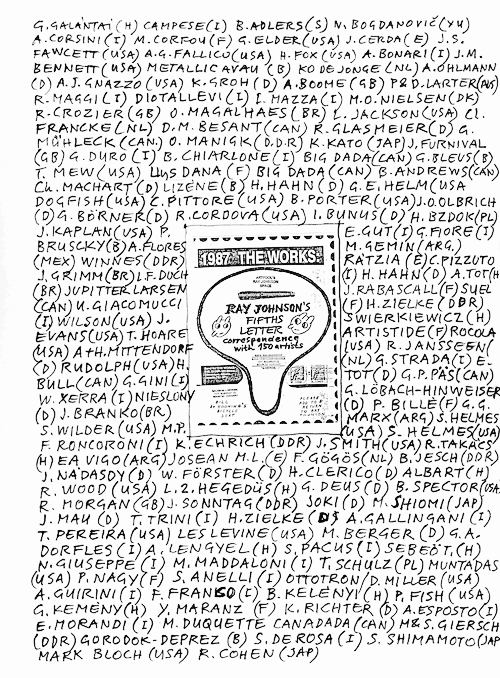 G. GALÁNTAI (H) CAMPESE (I) B. ADLERS (S) N. BOGDANOVIČ (YU)
A. CORSINI (I) M. CORFOU (F) G. ELDER (USA) J. CERDA (E) J.S.
FAWCETT (USA) A.G. FALLICO (USA) H. FOX (USA) A. BONARI (I) J.M.
BENNETT (USA) METALLIC AVAU (B) KO DE JONGE (NL) A. OHLMANN
(D) A.J. GNAZZO (USA) K. GROH (D) A. BOOME (GB) P & D. LARTER (AUS)
R. MAGGI (I) DIOTALLEVI (I) L. MAZZA (I) M.O. NIELSEN (DK)
R. CROZIER (GB) O. MAGALHAES (BR) L. JACKSON (USA) Cl.
FRANCKE (NL) D.M. BESANT (CAN) R. GLASMEIER (D) G.
MÜHLECK (CAN.) O. MANIGK (D.D.R) K. KATO (JAP) J. FURNIVAL
(GB) G. DURO (I) B. CHIARLONE (I) BIG DADA (CAN) G. BLEUS (B)
T. MEW (USA) LLYS DANA (F) BIG DADA (CAN) B. ANDREWS (CAN)
Ch. MACHART (D) LIZENE (B) H. HAHN (D) G.E. HELM (USA
DOGFISH (USA) C. PITTORE (USA) B. PORTER (USA) J.O. OLBRICH
(D) G. BÖRNER (D) R. CORDOVA (USA) I. BUNUS (D) H. BZDOK (PL)
J. KAPLAN (USA) P. E. GUT (I) G. FIORE (I)
BRUSCKY (B) A. FLORES M. GEMIN (ARG.)
1987 THE WORKS
(MEX) WINNES (DDR) RATZIA (E) C. PIZZUTO
J. GRIMM (BR) L.F. DUCH (I) H. HAHN (D) A. TOT (H
(BR) JUPITTER LARSEN J. RABASCALL (F) SUEL
(CAN) U. GIACOMUCCI (F) H. ZIELKE (DDR)
RAY JOHNSON'S
FIFTHS
LETTER
correspondence
with 150 artists
(I) WILSON (USA) J. SWIERKIEWICZ (H)
EVANS (USA) T. HOARE ARTISTIDE (F) ROCOLA
(USA) A+H. MITTENDORF (USA) R. JANSSEEN (
(D) RUDOLPH (USA) H. (NL) G. STRADA (I) E.
BULL (CAN) G. GINI (I) TOT (D) G.P. PAS (CAN)
W. XERRA (I) NIESLONY G. LÖBACH-HINWEISER
(D) J. BRANKO (BR) (D) P. BILLE (F) G.G.
S. WILDER (USA) M.P. MARX (ARG) S. HELMES
(USA) S. HELMES (USA)
F. RONCORONI (I) K. ECHRICH (DDR) J. SMITH (USA) R. TAKÁCS
(H) EA VIGO (ARG) JOSEAN M.L. (E) F. GÖGÖS (NL) B. JESCH (DDR)
J. NADASDY (D) W. FÖRSTER (D) H. CLERICO (D) ALBART (H)
R. WOOD (USA) L.2. HEGEDÜS (H) G. DEUS (D) B. SPECTOR (USA
R. MORGAN (GB) J. SONNTAG (DDR) JOKI (D) M. SHIOMI (JAP)
J. MAU (D) T. TRINI (I) H. ZIELKE A. GALLINGANI (I)
T. PEREIRA (USA) LES LEVINE (USA) M. BERGER (D) G.A.
DORFLES (I) A. LENGYEL (H) S. PACUS (I) SEBEÖT, (H)
N. GIUSEPPE (I) M. MADDALONI (I) T. SCHULZ (PL) MUNTADAS
(USA) P. NAGY (F) S. ANELLI (I) OTTOTRON/D. MILLER (USA)
A. GUIRINI (I) F. FRANCO (I) B. KELENYI (H) P. FISH (USA)
G. KEMENY (H) Y. MARANZ (F) K. RICHTER (D) A. ESPOSTO (I)
E. MORANDI (I) M. DUQUETTE CANADADA (CAN) M&S. GIERSCH
(DDR) GORODOK-DEPREZ (B) S. DE ROSA (I) S. SHIMAMOTO (JAP
MARK BLOCH (USA) R. COHEN (JAP)